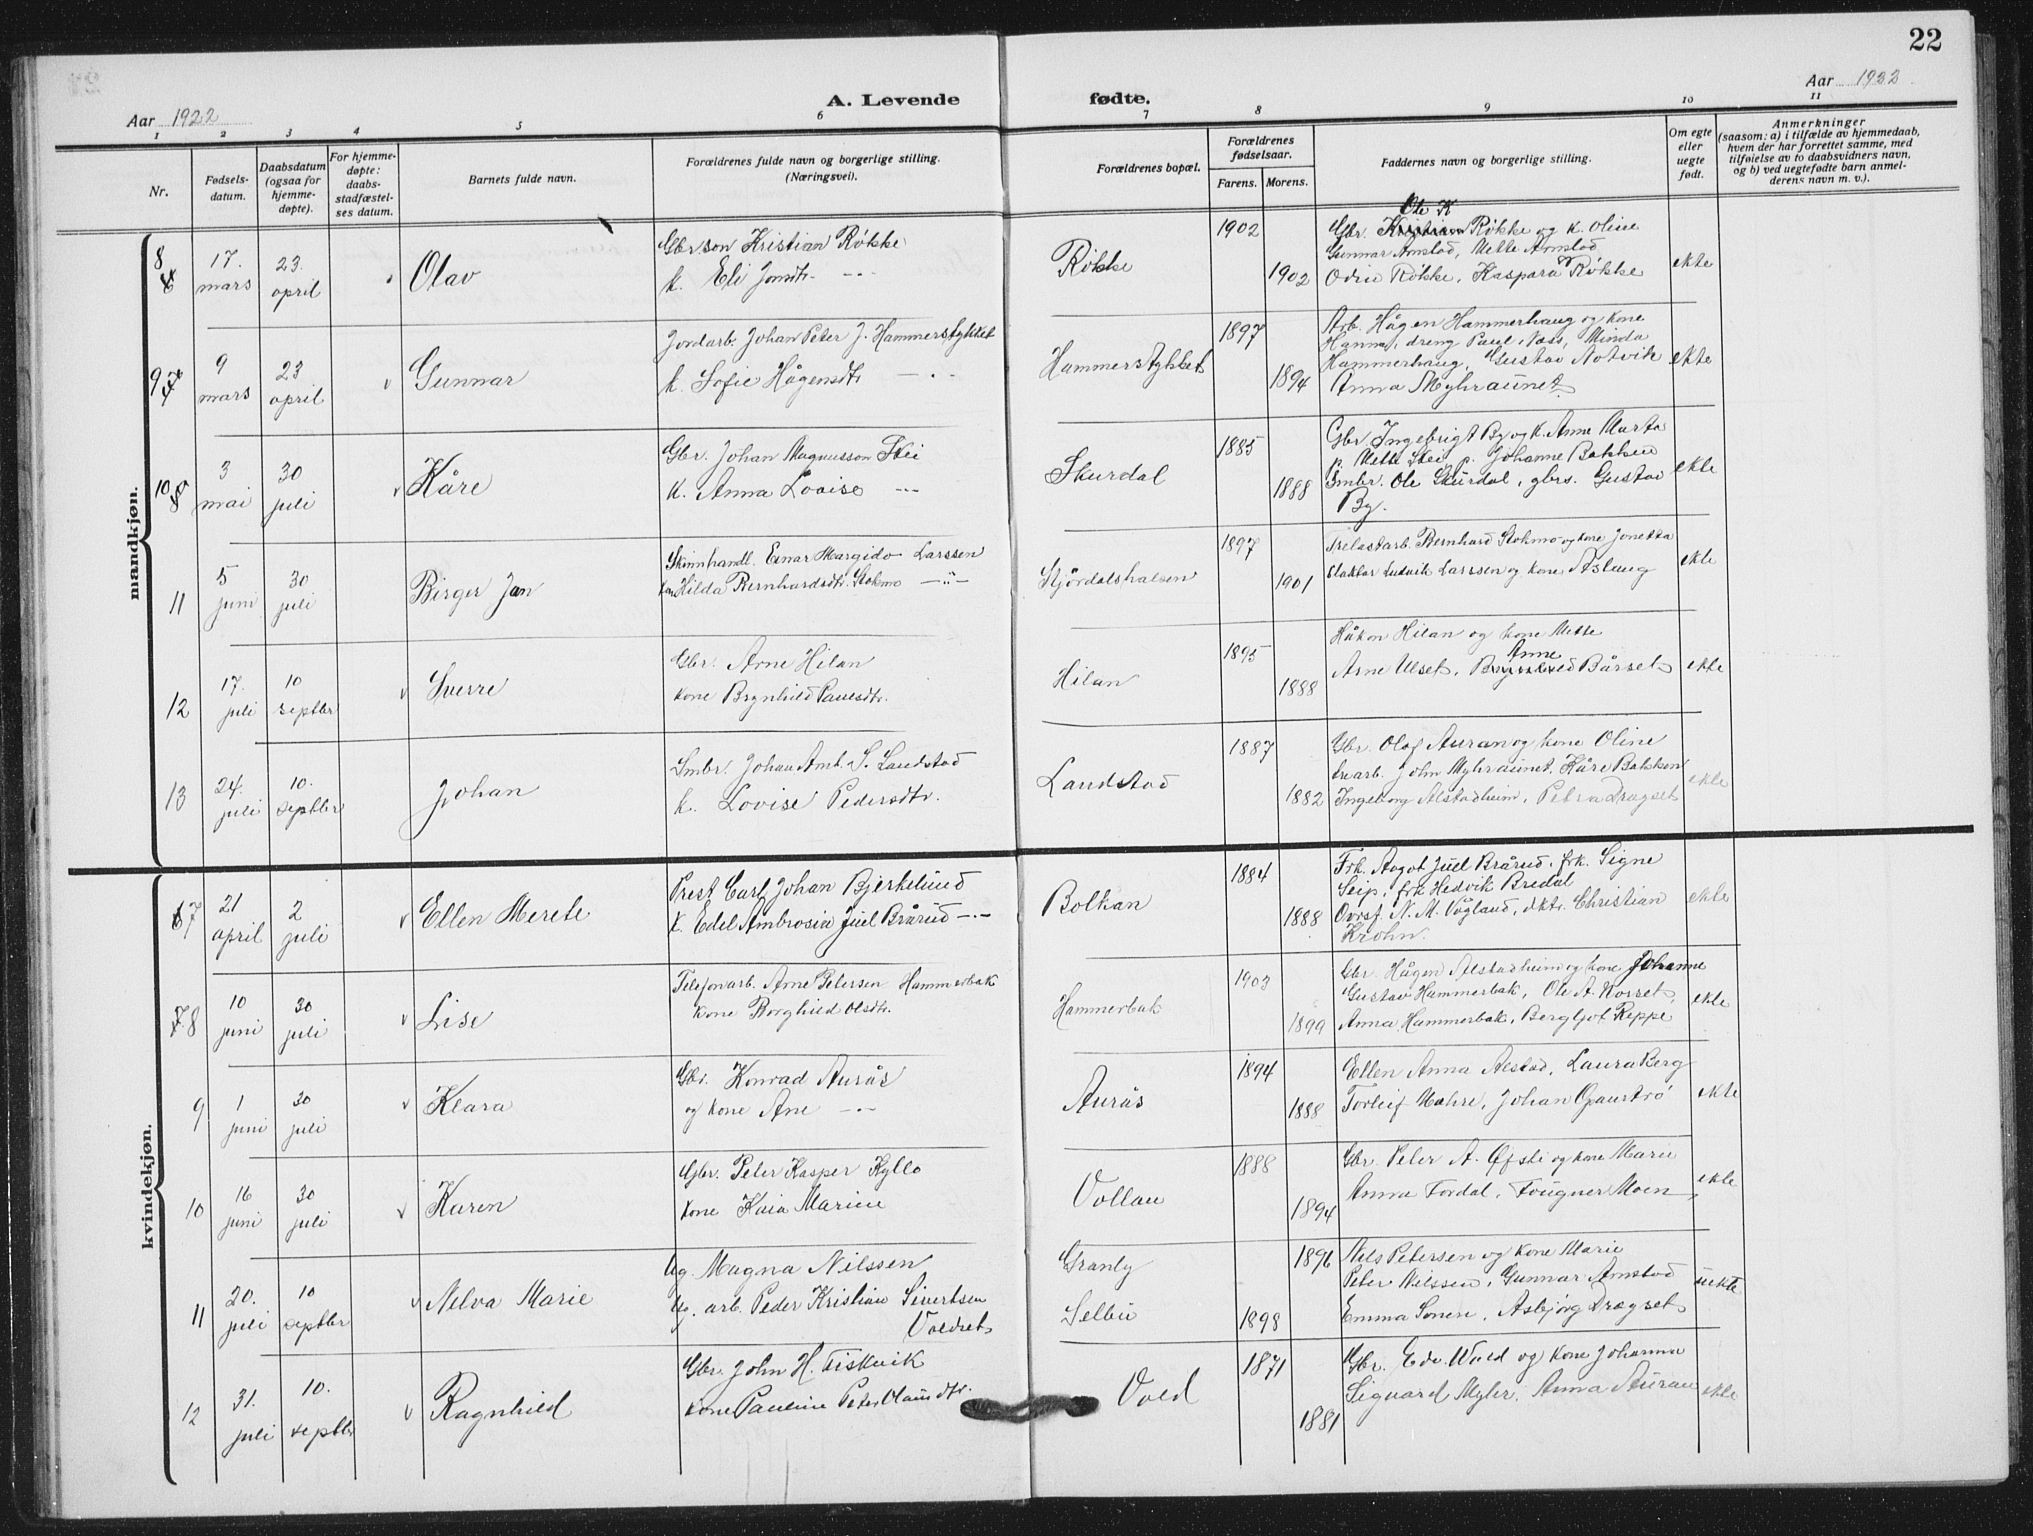 22
Aar 1922
A. Levende fødte.
Aar 1922
1 2 3 4 5 6 7 8 9 10 11
Nr.
Fødsels-datum.
Daabsdatum (ogsaa for hjemme-døpte).
For hjemme-døpte: daabs-stadfæstel-ses datum.
Barnets fulde navn.
Forældrenes fulde navn og borgerlige stilling. (Næringsvei).
Forældrenes bopæl.
Forældrenes fødselsaar.
Farens. Morens.
Faddernes navn og borgerlige stilling.
Om egte eller uegte født.
Anmerkninger
(saasom: a) i tilfælde av hjemmedaab,
hvem der har forrettet samme, med
tilføielse av to daabsvidners navn,
og b) ved uegtefødte barn anmel-
derens navn m. v.).
mandkjøn.
8
17. mars
23. april
Olav
Gbrson Kristian Røkke
k. Eli Jonsdtr. - - -
Røkke
1902
1902
Ole K
Gbr. Kristian Røkke og k. Oline
Gunnar Arnstad, Mette Arnstad
Odin Røkke, Kaspara Røkke
ekte
9
9 mars
23 april
Gunnar
Jordarb. Johan Peter J. Hammerstykket
k. Sofie Hågensdtr. - . -
Hammerstykket
1897
1894
Arb. Hågen Hammerhaug og kone
Hanna, dreng Paul Næss, Minda
Hammerhaug, Gustav Notvik
Anna Myhraunet.
ekte
10
3 mai
30 juli
Kåre
Gbr. Johan Magnusson Skei
k. Anna Lovise - - -
Skurdal
1885
1888
Gbr. Ingebrigt By og k. Anne Marta
p. Mette Skei p. Johanne Bakken
Smbr. Ole Skurdal, gbrs. Gustav
By.
ekte
11
5 juni
30 juli
Birger Jan
Skinnhandl. Einar Margido Larssen
kone Hilda Bernhardsdtr. Stokmo - " -
Stjördalshalsen
1897
1901
Trelastarb. Bernhard Stokmo og kone Jonetta
Slakter Ludvik Larssen og kone Aslaug
ekte
12
17. juli
10 septbr
Sverre
Gbr. Arne Hilan
kone Brynhild Paulsdtr.
Hilan
1895
1888
Håkon Hilan og kone Mette
Anne
Arne Ulset, Brynhild Bårset
ekte
13
24. juli
10. septbr
Johan
Smbr. Johan Amb. S. Landstad
k. Lovise Pedersdtr.
Landstad
1887
1882
Gbr. Olaf Auran og kone Oline
John Myhraunet, Kåre Bakken
Ingeborg Alstadheim, Petra Dragset
ekte
kvindekjøn.
7
21 april
2 juli
Ellen Merete
Prest Carl Johan Bjerkelund
k. Edel Ambrosia Juel Brårud - . -
Bolkan
1884
1888
Frk. Aagot Juel Brårud, frk. Signe
Seip, frk Hedvik Bredal
Ovrsf. N. M. Vågland, dktr. Christian
Krohn.
ekte
8
10 juni
30 juli
Lise
Telefonarb. Arne Petersen Hammerbak
kone Borghild Olsdtr.
Hammerbak
1903
1899
Gbr. Hågen Alstadheim og kone Johanne
Gustav Hammerbak, Ole A. Korset,
Anna Hammerbak, Bergljot Reppe
ekte
9
1 juni
30 juli
Klara
Gbr. Konrad Aurås
og kone Ane - . -
Aurås
1894
1888
Ellen Anna Alstad, Laura Berg
Torleif Mæhre, Johan Opauströ
ekte
10
16 juni
30 juli
Karen
Gbr. Peter Kasper Kyllo
kone Kaia Marine
Vollan
1888
1894
Gbr. Peter A. Øfsti og kone Marie
Anna Fordal, Fougner Moen
ekte
11
20. juli
10 septbr
Nelva Marie
Ug. Magna Nilssen
Ug. arb. Peder Kristian Sivertsen
Voldset
Granly
Selbu
1896
1898
Nils Petersen og kone Marie
Peter Nilssen, Gunnar Arnstad
Emma Sonen, Asbjörg Dragset
uekte
12
31. juli
10. septbr
Ragnhild
Gbr. John H. Fiskvik
kone Pauline Peter Olausdtr.
Vold
1871
1881
Gbr. Edv. Wold og kone Johanna
Siguard Myhr, Anna Auran
ekte